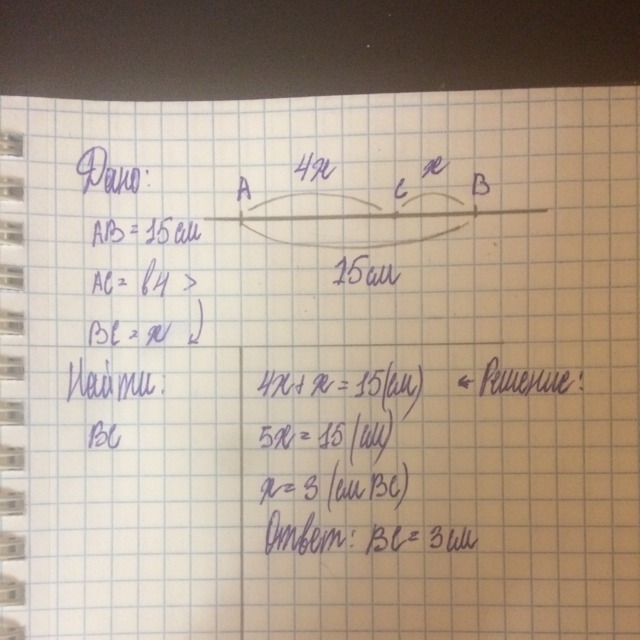 Дано:
4x
x
A
C
B
AB = 15 см
15 см
AC = в 4 >
BC = x
Найти:
BC
4x + x = 15 (см) ← Решение:
5x = 15 (см)
x = 3 (см BC)
Ответ: BC = 3 см